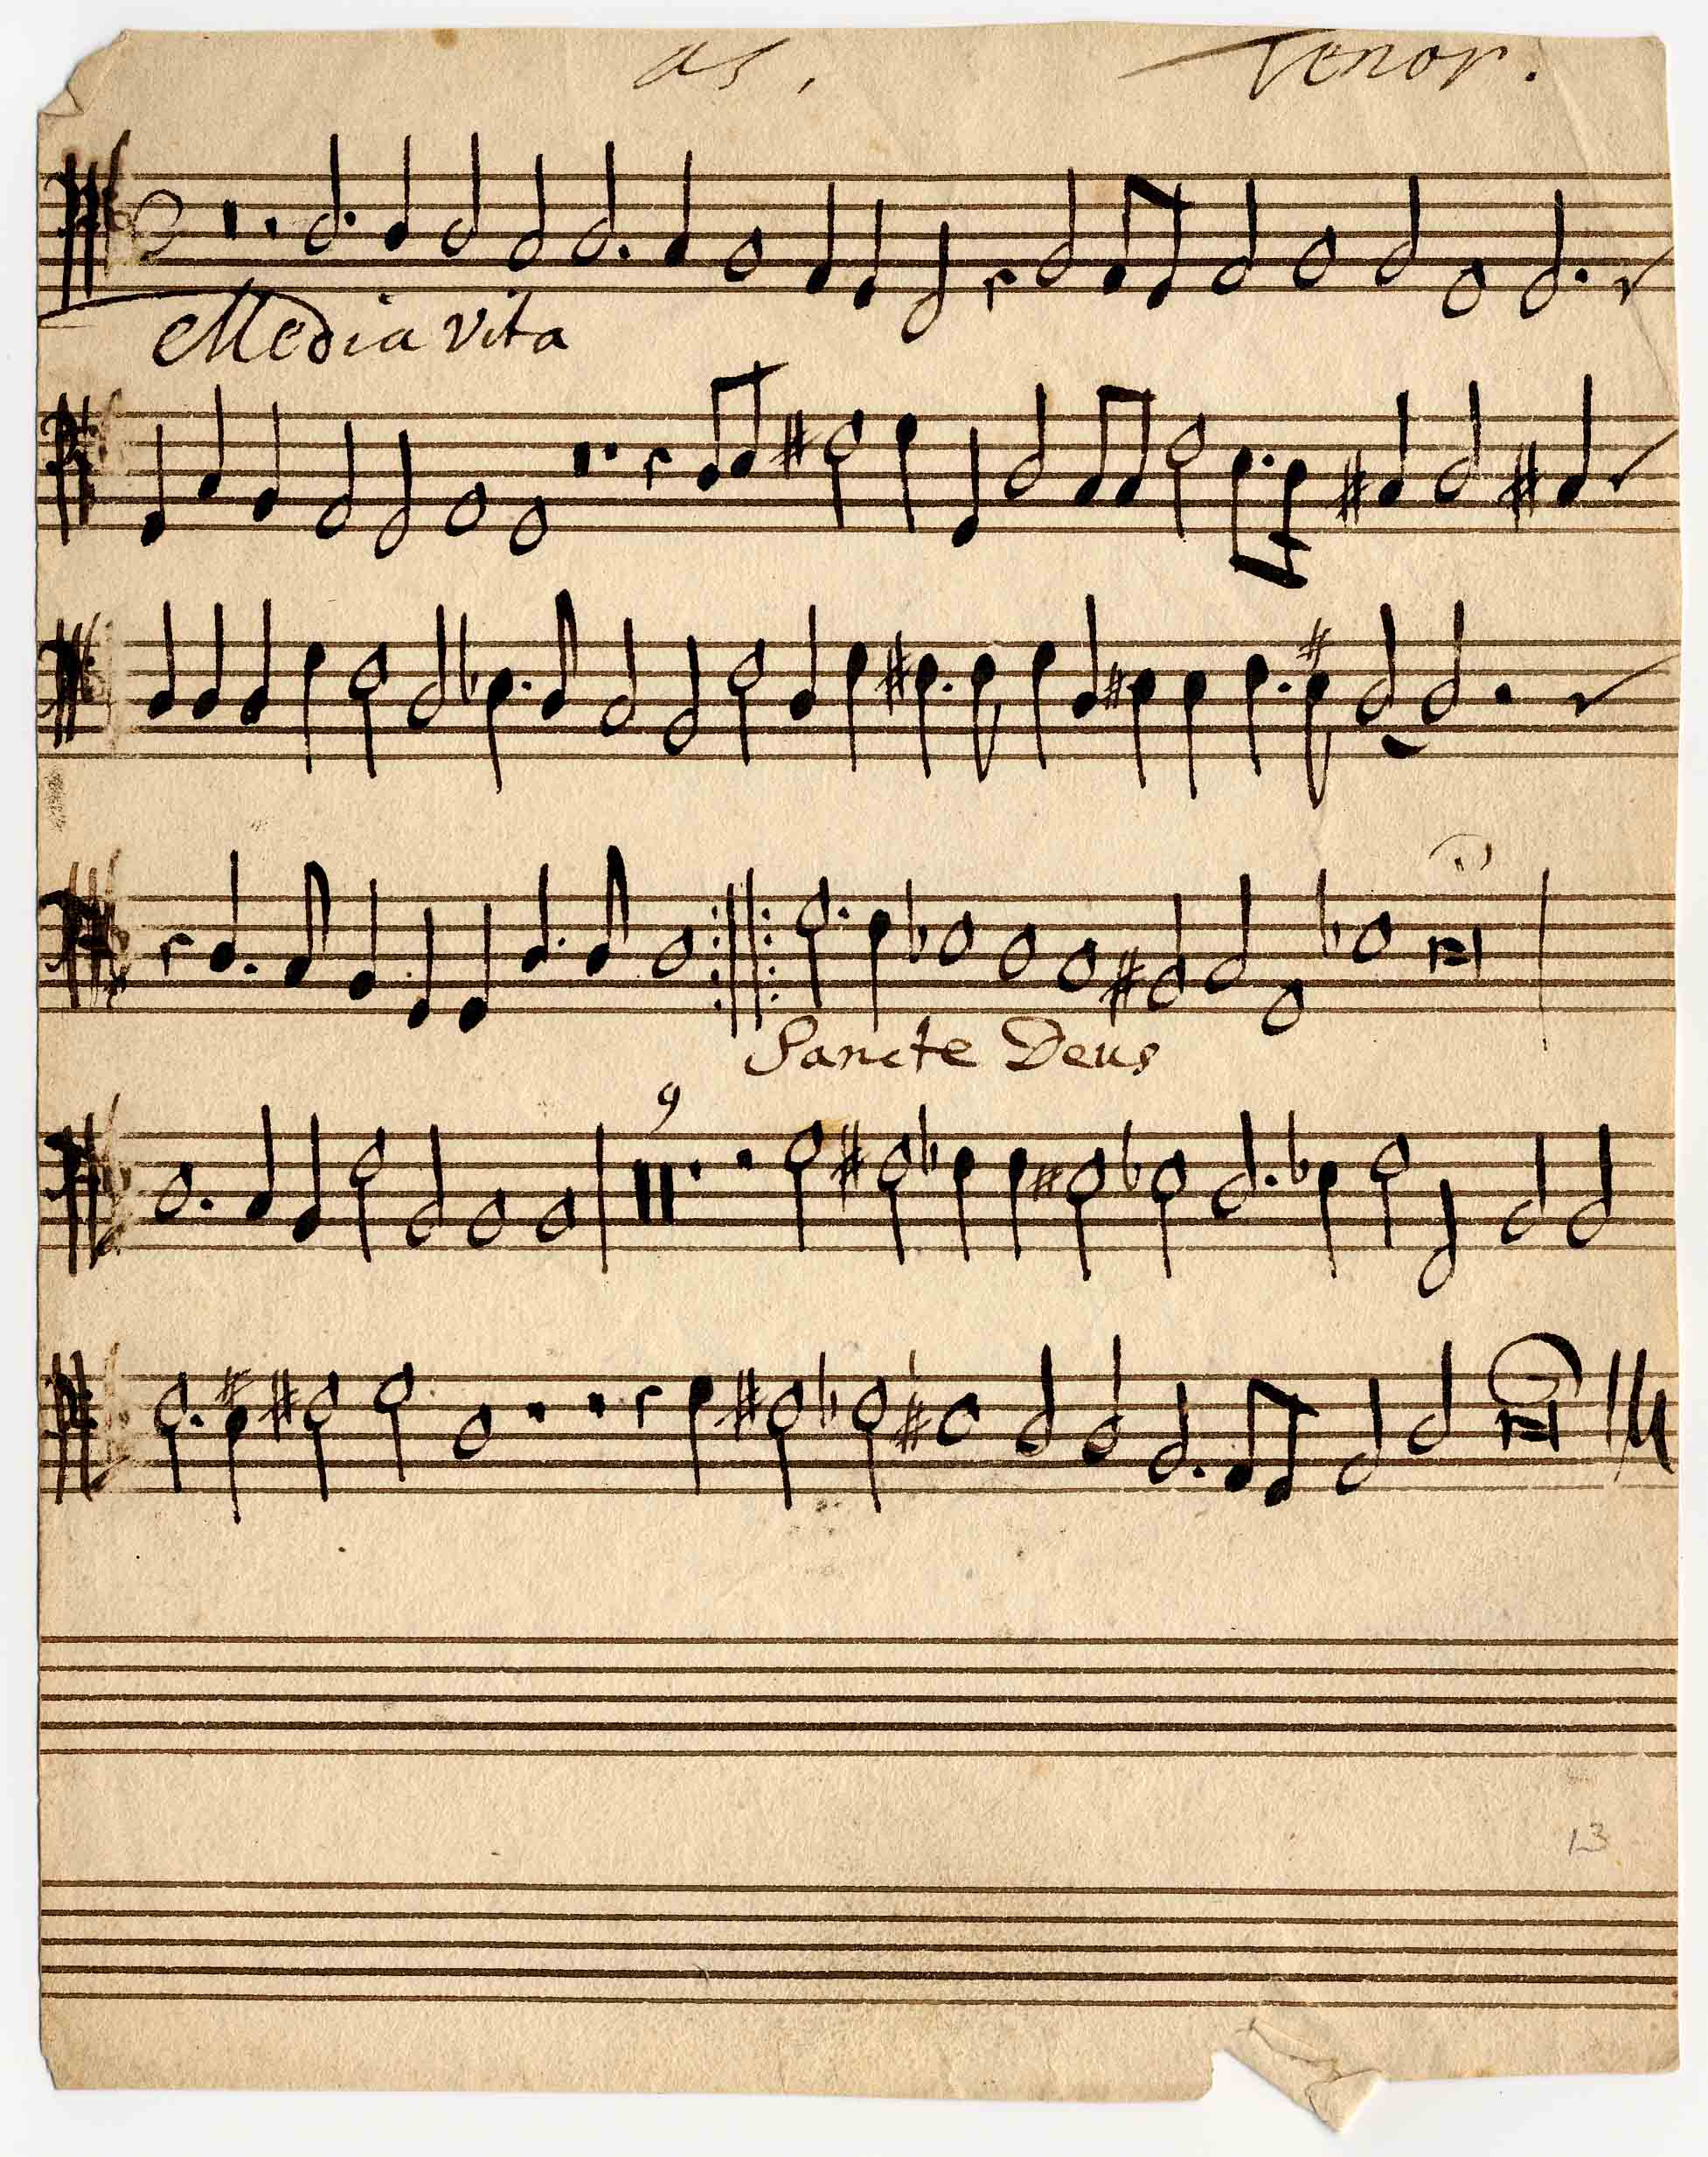 as, Tenor.
Media vita
Sancte Deus
9
13